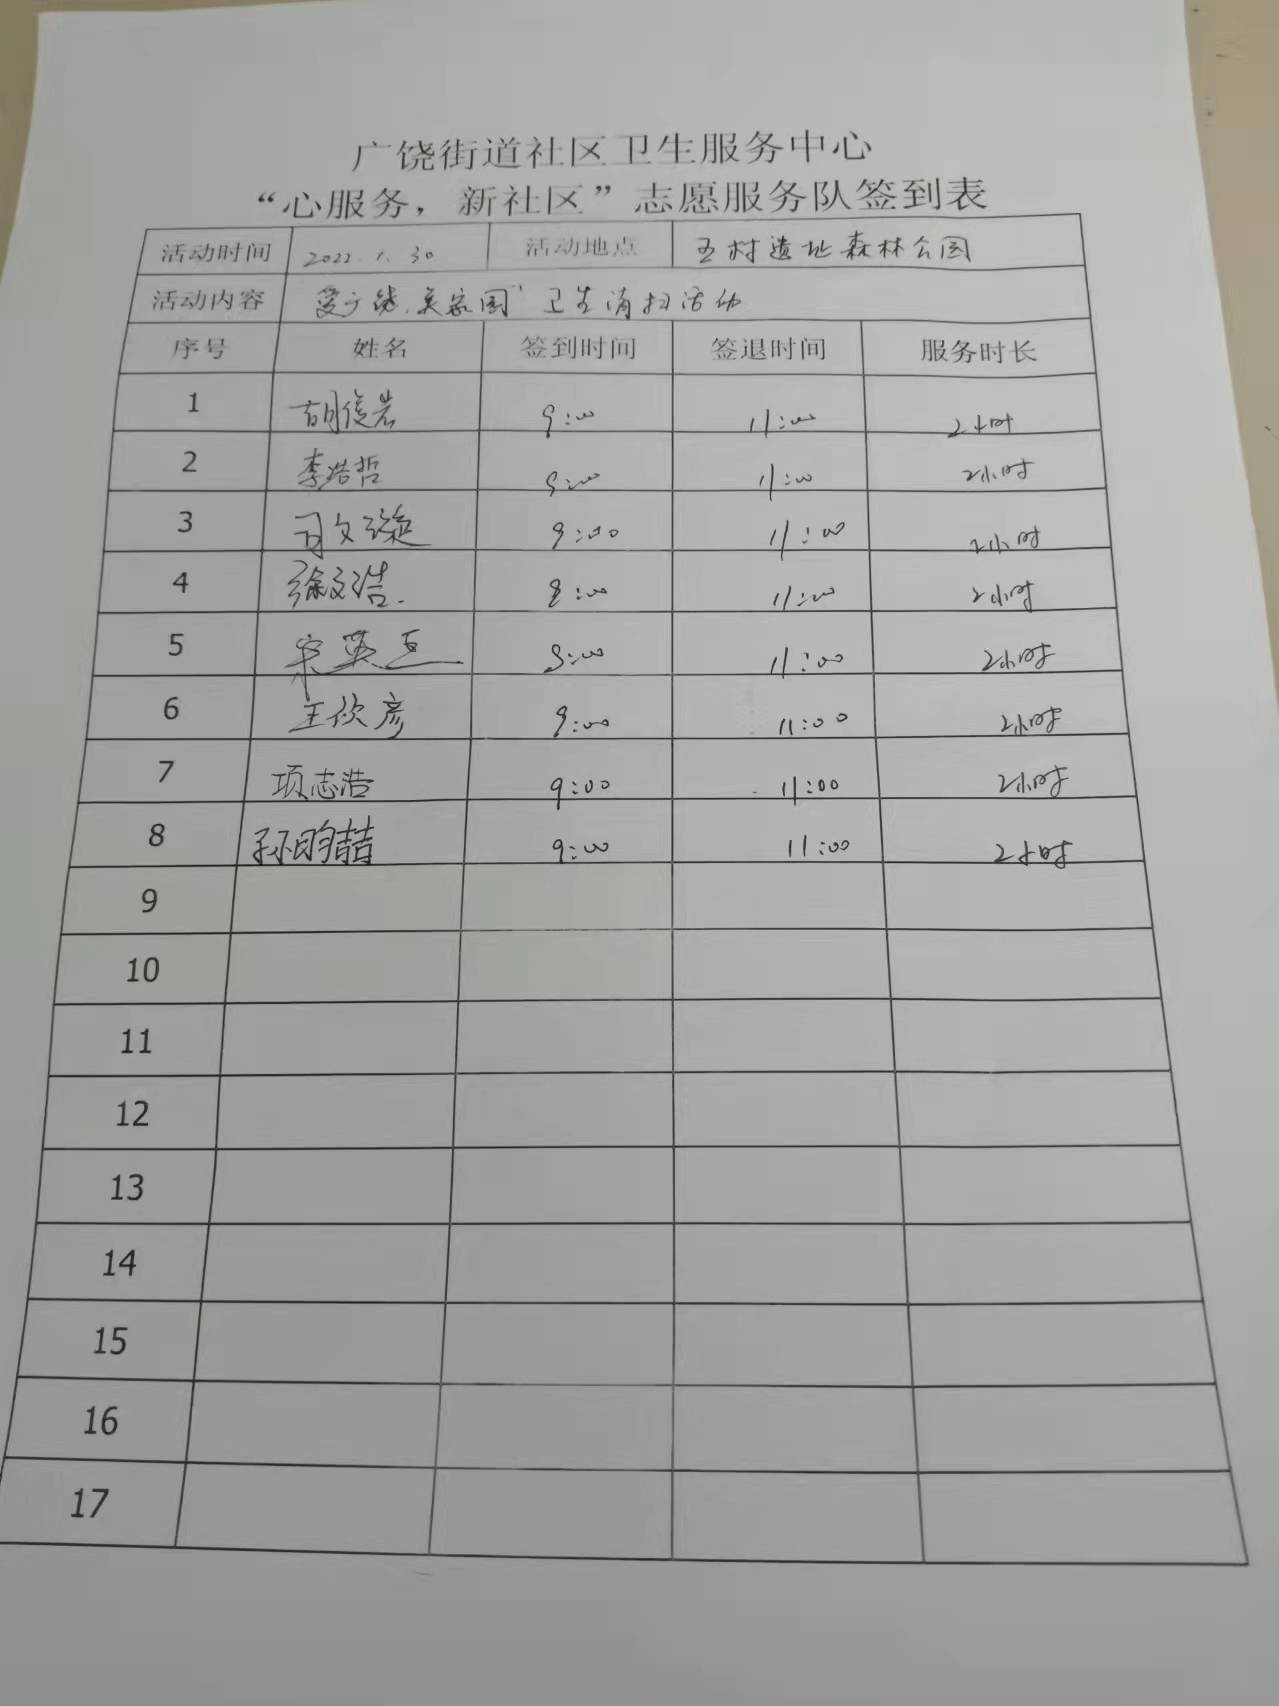 广饶街道社区卫生服务中心
“心服务，新社区”志愿服务队签到表
活动时间 2022.1.30 活动地点 五村遗址森林公园
活动内容 爱广饶.美家园” 卫生清扫活动
序号 姓名 签到时间 签退时间 服务时长
1 胡俊岩 9:00 11:00 2小时
2 李浩哲 9:00 11:00 2小时
3 司文璇 9:00 11:00 2小时
4 徐文浩. 9:00 11:00 2小时
5 宋英 9:00 11:00 2小时
6 王欣彦 9:00 11:00 2小时
7 项志浩 9:00 11:00 2小时
8 孙昀喆 9:00 11:00 2小时
9
10
11
12
13
14
15
16
17